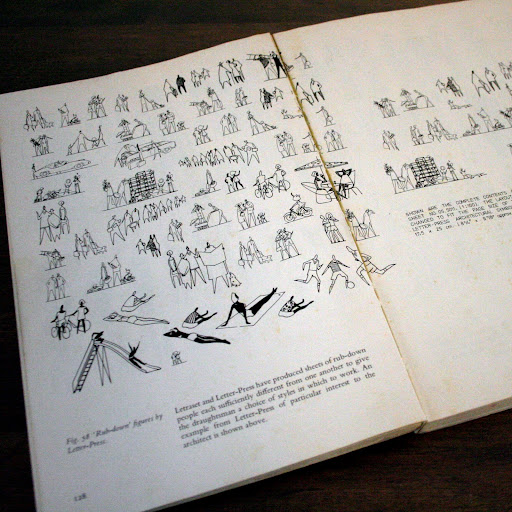 Fig. 58 'Rub-down' figures by
Letter-Press.
Letraset and Letter-Press have produced sheets of rub-down
people each sufficiently different from one another to give
the draughtsman a choice of styles in which to work. An
example from Letter-Press of particular interest to the
architect is shown above.
128
SHOWN ARE THE COMPLETE CONTENTS
SHEET NO
THE LAYOUT
CHANGED TO FIT THE PAGE SIZE OF
LETTER-PRESS ARCHITECTURAL